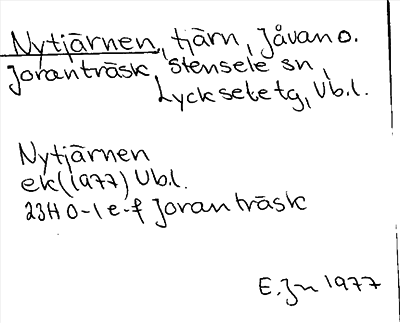 Nytjärnen, tjärn, Jåvan o.
Joranträsk, Stensele sn,
Lycksele tg, Vb.l.
Nytjärnen
ek (1977) Vb.l.
23H 0-1 e-f Joranträsk
E. Jn 1977